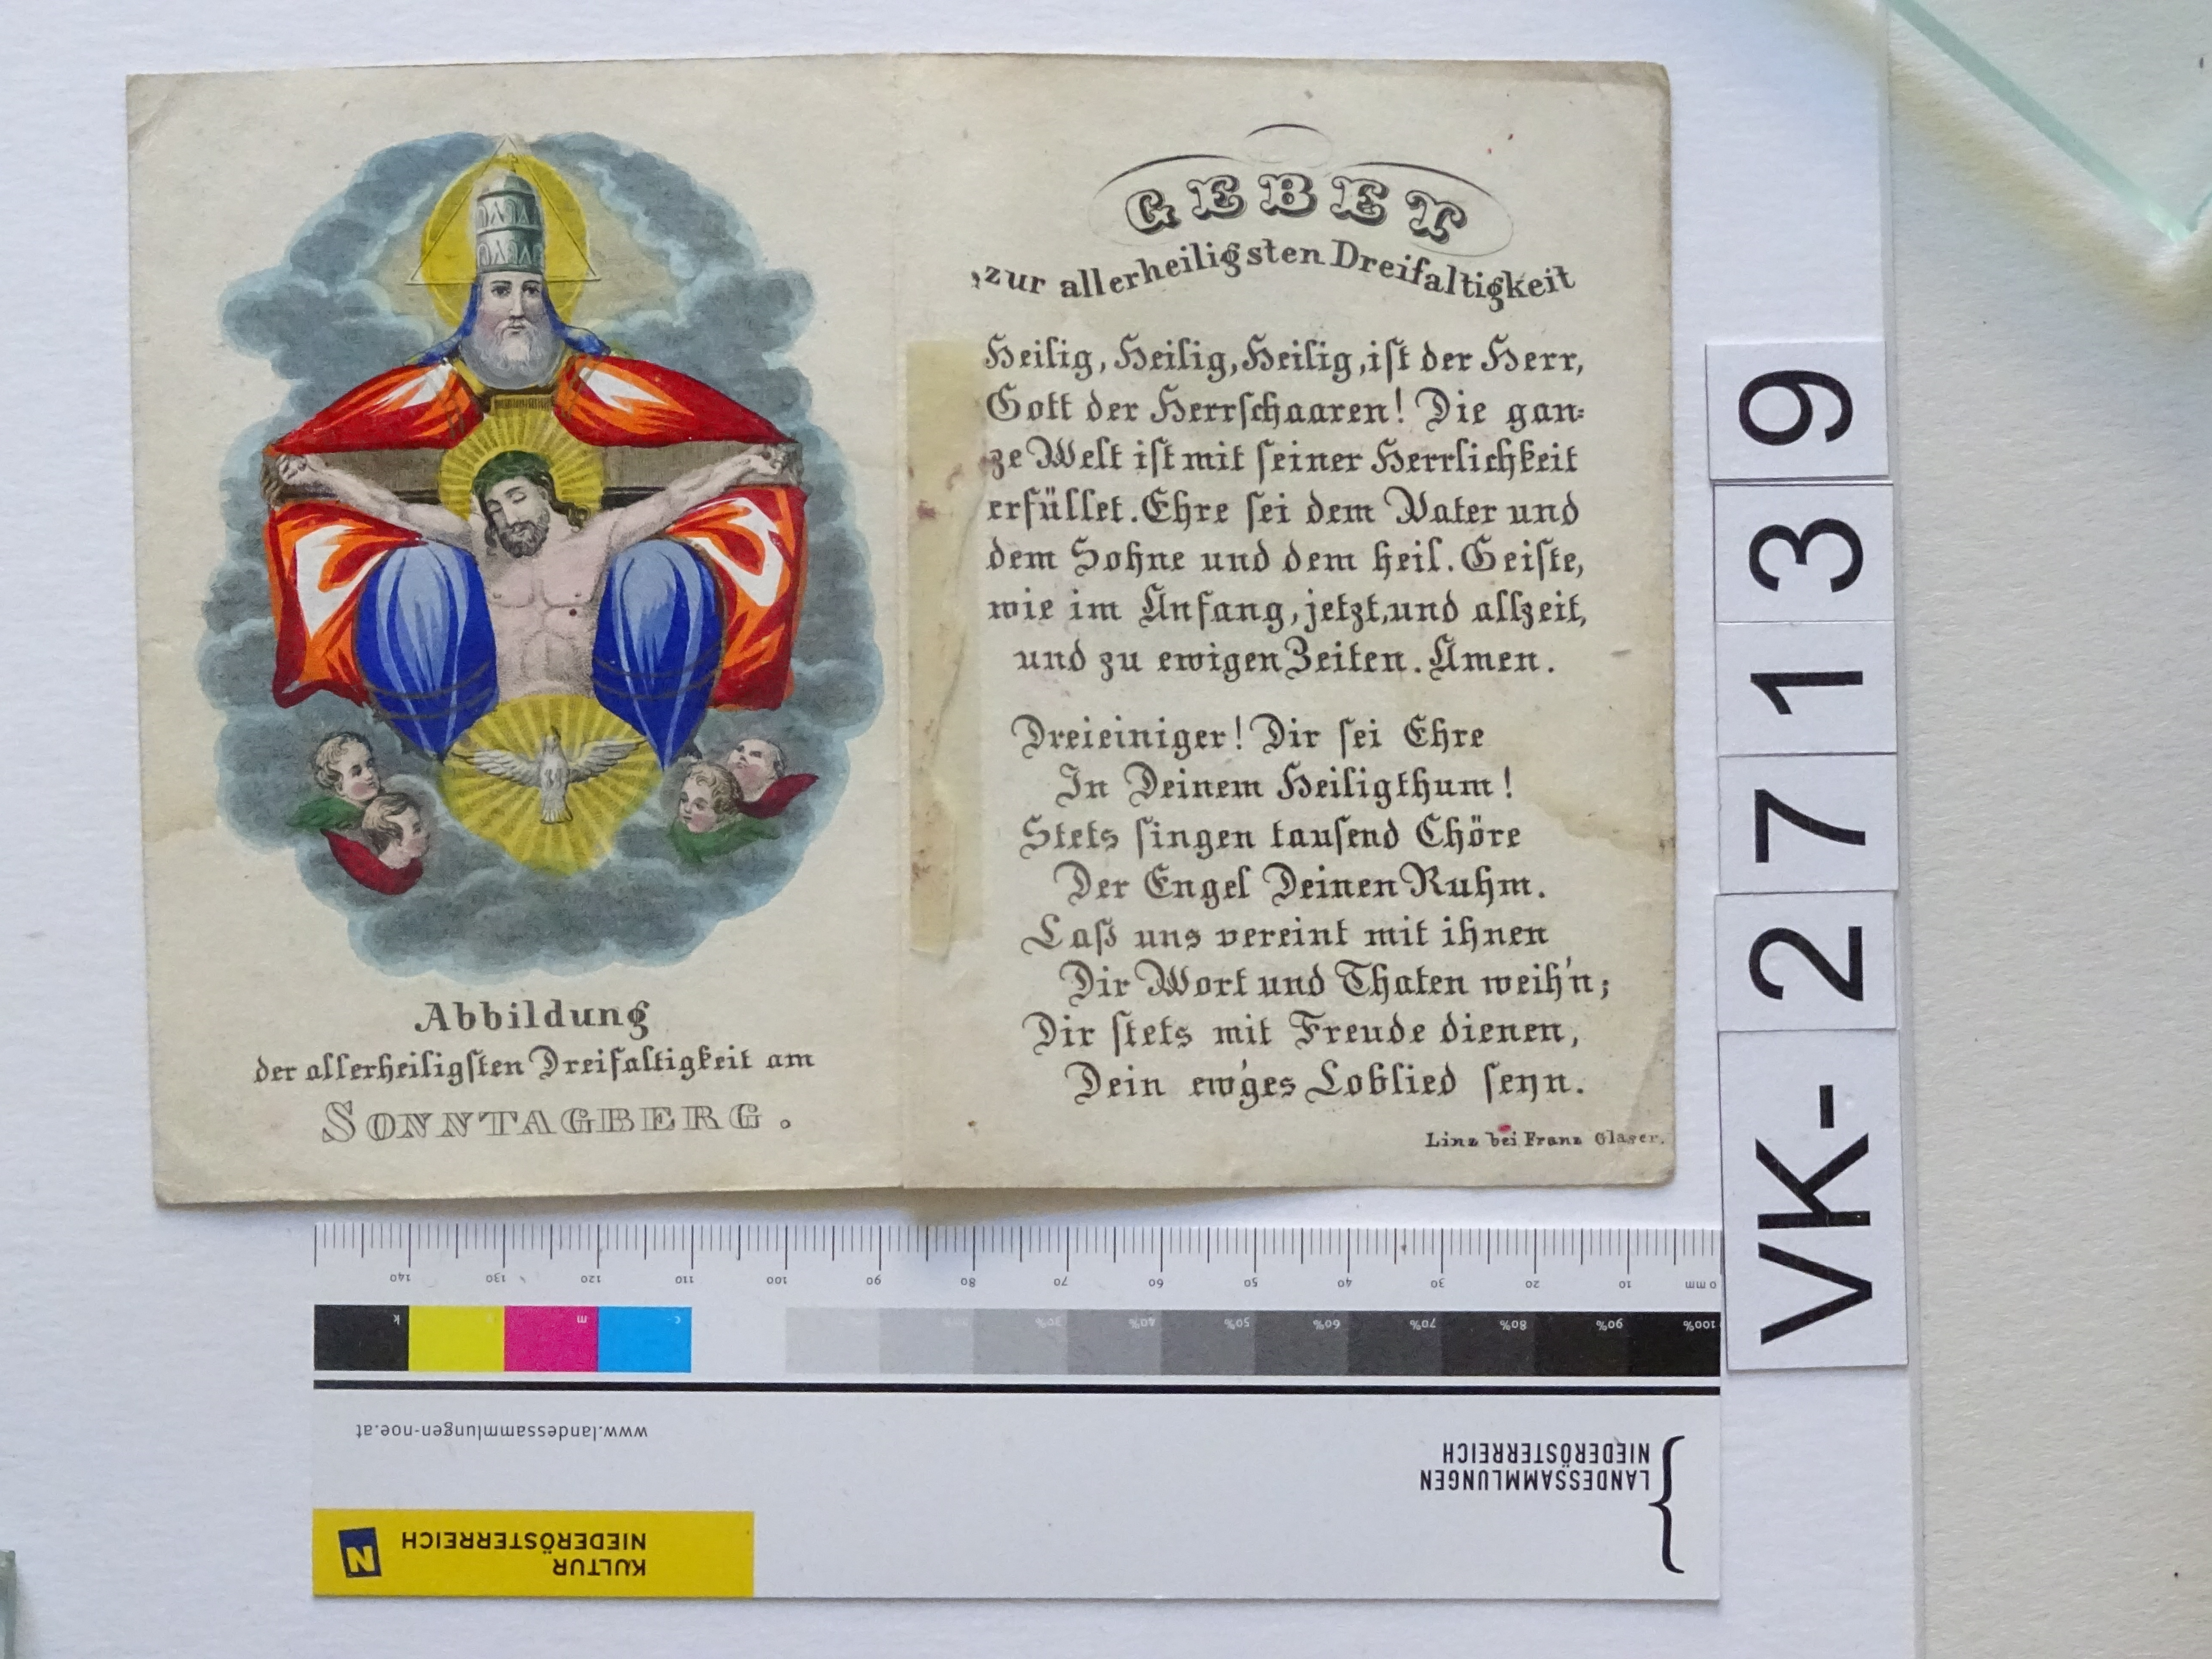 Abbildung
der allerheiligsten Dreifaltigkeit am
SONNTAGBERG.
GEBET
zur allerheiligsten Dreifaltigkeit
Heilig, Heilig, Heilig, iſt der Herr,
Gott der Herrſchaaren! Die gan=
ze Welt iſt mit ſeiner Herrlichkeit
erfüllet. Ehre ſei dem Vater und
dem Sohne und dem heil. Geiſte,
wie im Anfang, jetzt, und allzeit,
und zu ewigen Zeiten. Amen.
Dreieiniger! Dir ſei Ehre
In Deinem Heiligthum!
Stets ſingen tauſend Chöre
Der Engel Deinen Ruhm.
Laß uns vereint mit ihnen
Dir Wort und Thaten weih'n;
Dir ſtets mit Freude dienen,
Dein ew'ges Loblied ſeyn.
Linz bei Franz Glaser.
VK-27139
0 mm 10 20 30 40 50 60 70 80 90 100 110 120 130 140
100% 90% 80% 70% 60% 50% 40% 30%
c m k
www.landessammlungen-noe.at
LANDESSAMMLUNGEN
NIEDERÖSTERREICH
KULTUR
NIEDERÖSTERREICH
N